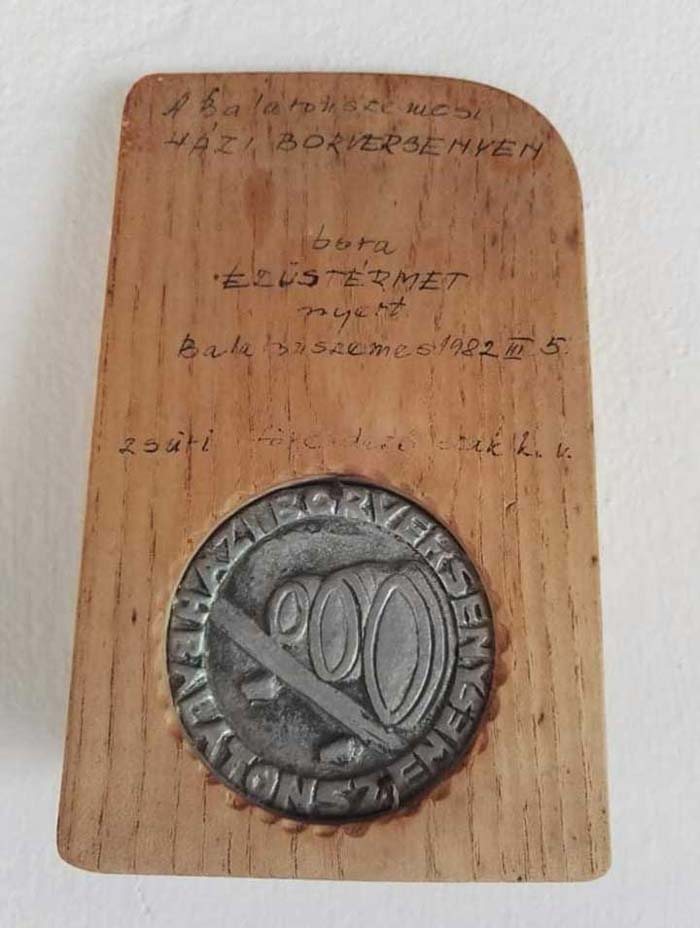 A Balatonszemesi
HÁZI BORVERSENYEN
bora
EZÜSTÉRMET
nyert
Balatonszemes 1982 III 5.
zsüri szak k. v.
HÁZI BORVERSENY SZEMES
BALATONSZEMES